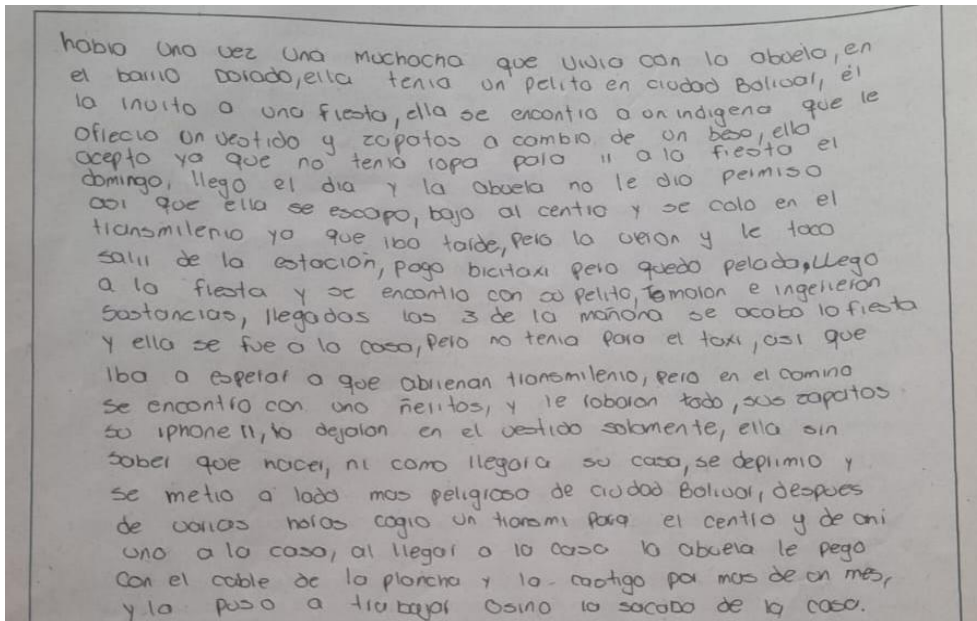 habia una vez una muchacha que vivia con la abuela, en
el barrio Dorado, ella tenia un pelito en ciudad Bolivar, él
la invito a una fiesta, ella se encontro a un indigena que le
ofrecio un vestido y zapatos a cambio de un beso, ella
acepto ya que no tenia ropa para ir a la fiesta el
domingo, llego el dia y la abuela no le dio permiso
asi que ella se escapo, bajo al centro y se colo en el
transmilenio ya que iba tarde, pero la veron y le toco
salir de la estación, pago bicitaxi pero quedo pelada, Llego
a la fiesta y se encontro con su pelito, tomaron e ingerieron
Sustancias, llegadas las 3 de la mañana se acabo la fiesta
y ella se fue a la casa, pero no tenia para el taxi, asi que
iba a esperar a que abrieran transmilenio, pero en el camino
se encontro con uno ñeritos, y le robaron todo, sus zapatos
su iphone 11, la dejaron en el vestido solamente, ella sin
saber que hacer, ni como llegar a su casa, se deprimio y
se metio a lado mas peligroso de ciudad Bolivar, despues
de varias horas cogio un transmi para el centro y de ahi
uno a la casa, al llegar a la casa la abuela le pego
con el cable de la plancha y la castigo por mas de un mes,
y la puso a trabajar osino la sacaba de la casa.